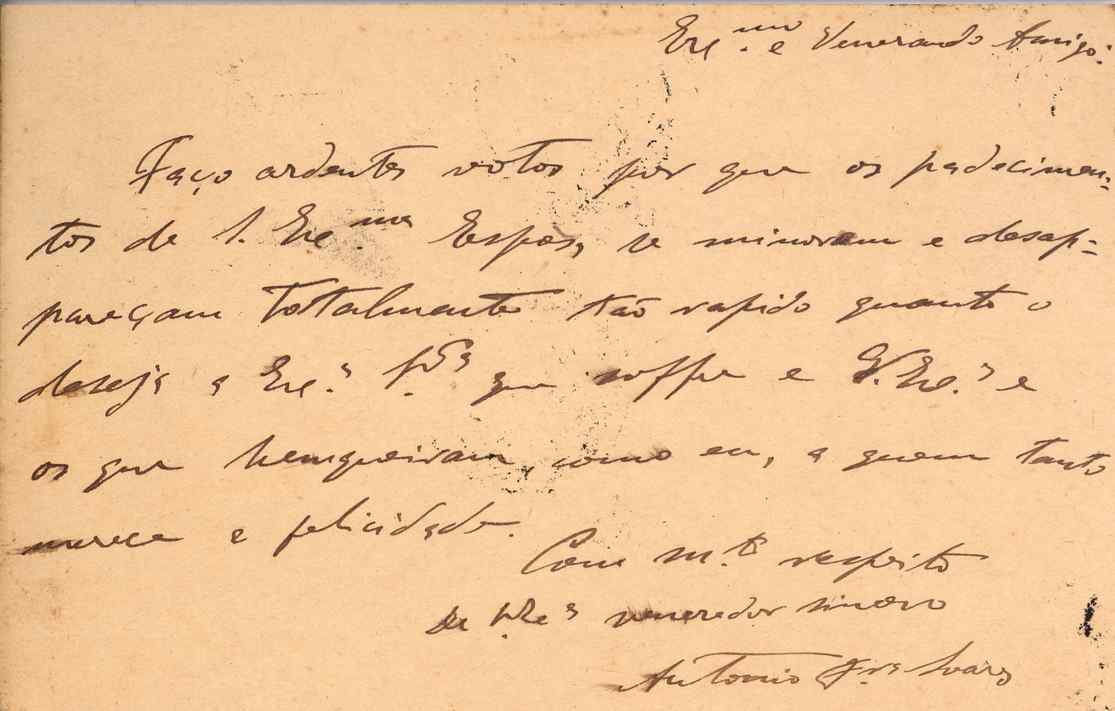 Exc.mo e Venerando Amigo:
Faço ardentes votos por que os padecimen-
tos de S. Exc.ma Espos, se minoram e desap-
pareçam tottalmente tão rapido quanto o
deseja a Exc.a que soffre e V. Exc.a e
os que bemqueiram, como eu, a quem tanto
merece e felicidade.
Com m.to respeito
De V. Exc.a venerador sincero
Antonio Soares